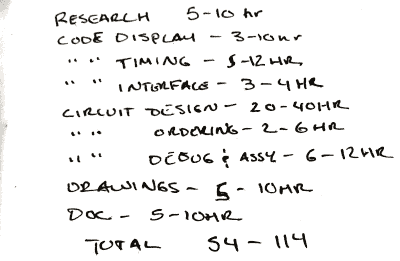 RESEARCH 5-10 hr
CODE DISPLAY - 3-10hr
" " TIMING - 5-12 HR
" " INTERFACE - 3-4 HR
CIRCUIT DESIGN - 20-40HR
" " ORDERING - 2-6 HR
" " DEBUG & ASSY - 6-12HR
DRAWINGS - 5-10HR
DOC - 5-10HR
TOTAL 54-114